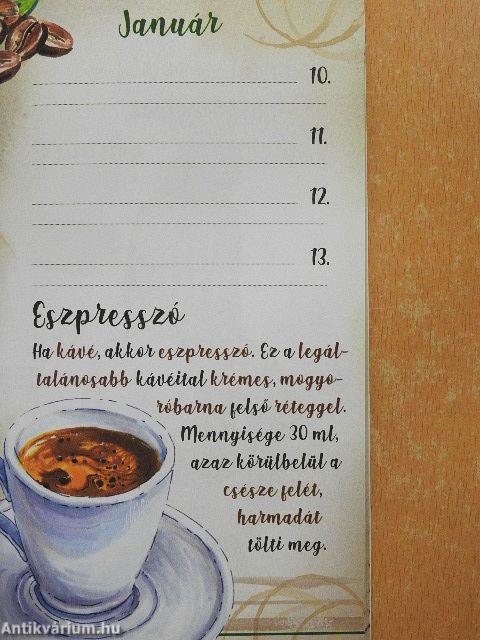 Január
10.
11.
12.
13.
Eszpresszó
Ha kávé, akkor eszpresszó. Ez a legál-
talánosabb kávéital krémes, mogyo-
róbarna felső réteggel.
Mennyisége 30 ml,
azaz körülbelül a
csésze felét,
harmadát
tölti meg.
Antikvárium.hu